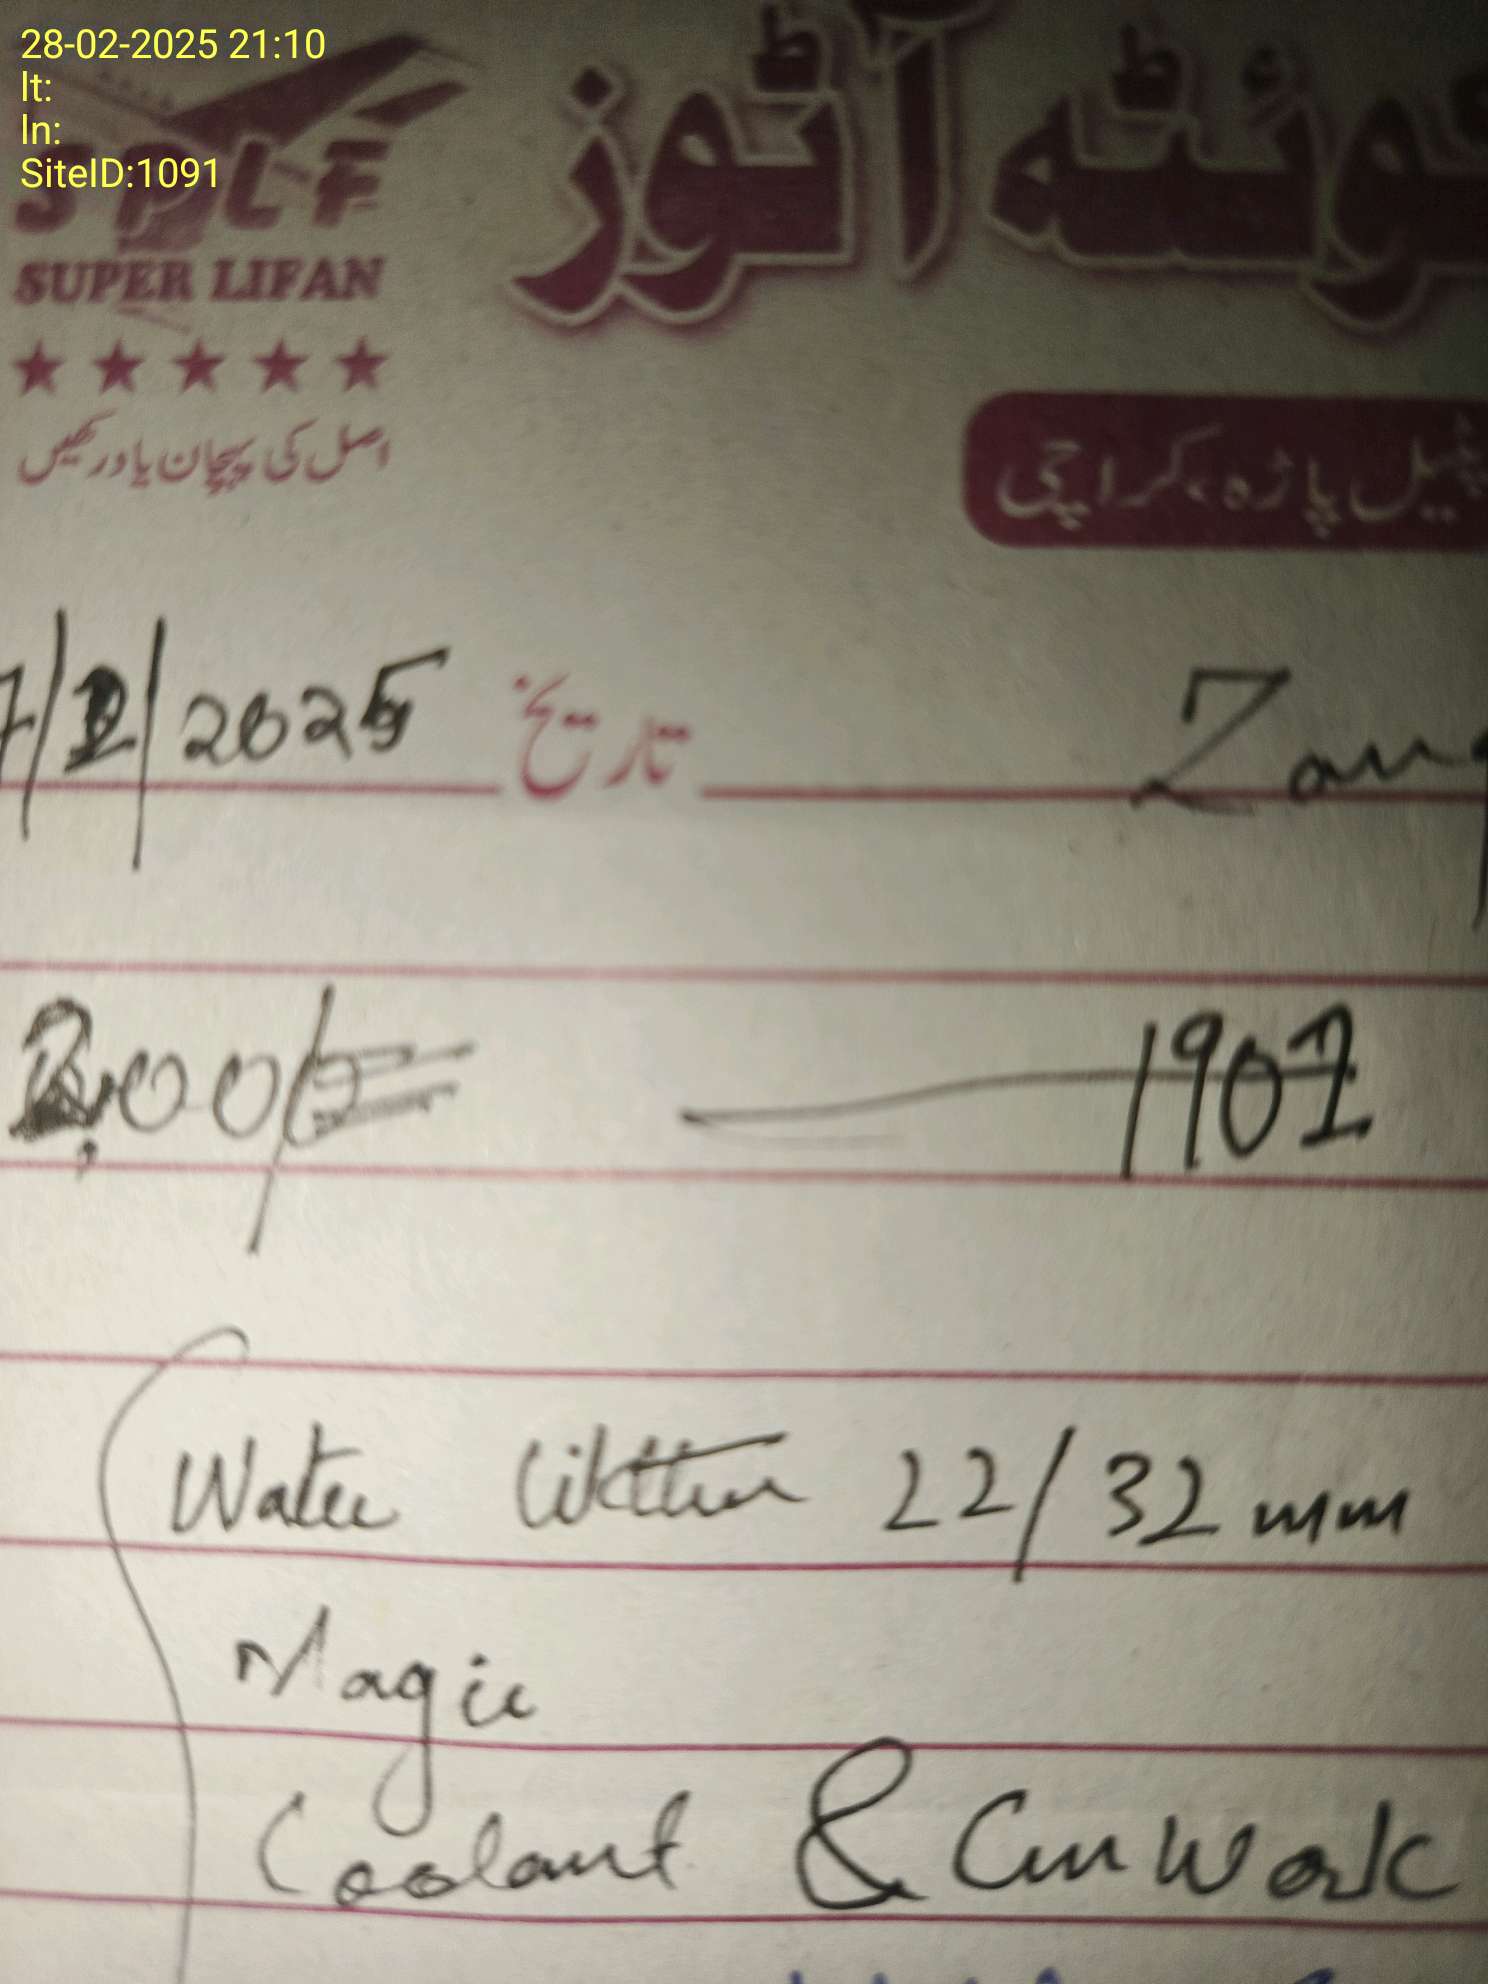 28-02-2025 21:10
lt:
ln:
SiteID:1091
SPLF
SUPER LIFAN
اصل کی پہچان یاد رکھیں
کوئٹہ آٹوز
پٹیل پاڑہ، کراچی
7/2/2025 تاریخ
1907
Water 22/32 mm
Magic
Coolant & Work